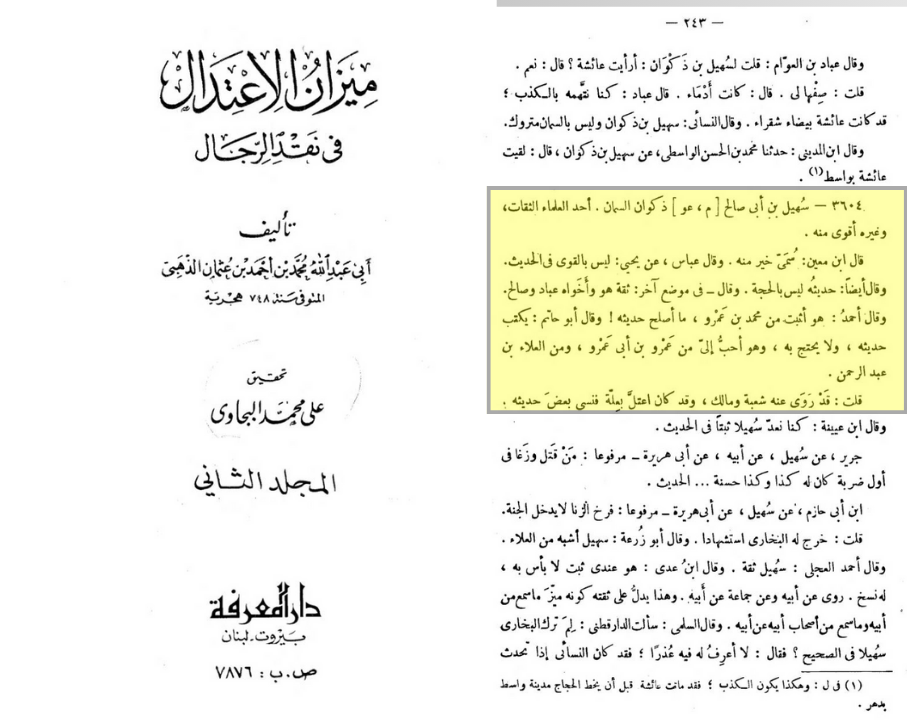 ميزان الاعتدال
في نقد الرجال
تأليف
أبي عبد الله محمد بن أحمد بن عثمان الذهبي
المتوفى سنة ٧٤٨ هجرية
تحقيق
علي محمد البجاوي
المجلد الثاني
دار المعرفة
بيروت ـ لبنان
ص . ب : ٧٨٧٦
— ٢٤٣ —
وقال عباد بن العوام : قلت لسُهيل بن ذَكْوَان : أرأيت عائشة ؟ قال : نعم .
قلت : صِفْها لى . قال : كانت أَدْمَاء . قال عباد : كنا نتَّهمه بالكذب ؛
قد كانت عائشة بيضاء شقراء . وقال النسائى : سهيل بن ذكوان وليس بالسمان متروك.
وقال ابن المدينى : حدثنا محمد بن الحسن الواسطى، عن سهيل بن ذكوان ، قال : لقيت
عائشة بواسط(١) .
٣٦٠٤ — سُهيل بن أبى صالح [ م ، عو ] ذكوان السمان . أحد العلماء الثقات،
وغيره أقوى منه .
قال ابن معين: سُمَىّ خير منه . وقال عباس ، عن يحيى: ليس بالقوى فى الحديث.
وقال أيضاً: حديثُه ليس بالحجة . وقال ـ فى موضع آخر: ثقة هو وأَخَواه عباد وصالح.
وقال أحمدُ : هو أثبت من محمد بن عَمْرو ، ما أصلح حديثه ! وقال أبو حاتم : يكتب
حديثه ، ولا يحتج به ، وهو أحبُّ إلىّ من عَمْرو بن أبى عَمْرو ، ومن العلاء بن
عبد الرحمن .
قلت : قَدْ رَوَى عنه شعبة ومالك ، وقد كان اعتلَّ بعِلّة فنسى بعضَ حديثه .
وقال ابن عيينة : كنا نعدّ سُهيلا ثبتاً فى الحديث .
جرير ، عن سُهيل ، عن أبيه ، عن أبى هريرة ـ مرفوعا : مَنْ قتل وزَغا فى
أول ضربة كان له كذا وكذا حسنة ... الحديث .
ابن أبى حازم ، عن سُهيل ، عن أبى هريرة ـ مرفوعا : فرخ الزنا لايدخل الجنة.
قلت : خرج له البخارى استشهادا . وقال أبو زُرعة : سهيل أشبه من العلاء .
وقال أحمد العجلى : سُهيل ثقة . وقال ابن ُعدى : هو عندى ثبت لا بأس به ،
له نسخ . روى عن أبيه وعن جماعة عن أَبيه . وهذا يدلُّ على ثقته كونه ميّزَ ماسمع من
أبيه وما سمع من أصحاب أبيه عن أبيه . وقال السلمى : سألت الدارقطنى : لِمَ ترك البخارى
سُهيلا فى الصحيح ؟ فقال : لا أعرِفُ له فيه عُذرًا ؛ فقد كان النسائى إذا تحدث
(١) فى ل : وهكذا يكون الكذب ؛ فقد ماتت عائشة قبل أن يخط الحجاج مدينة واسط
بدهر .